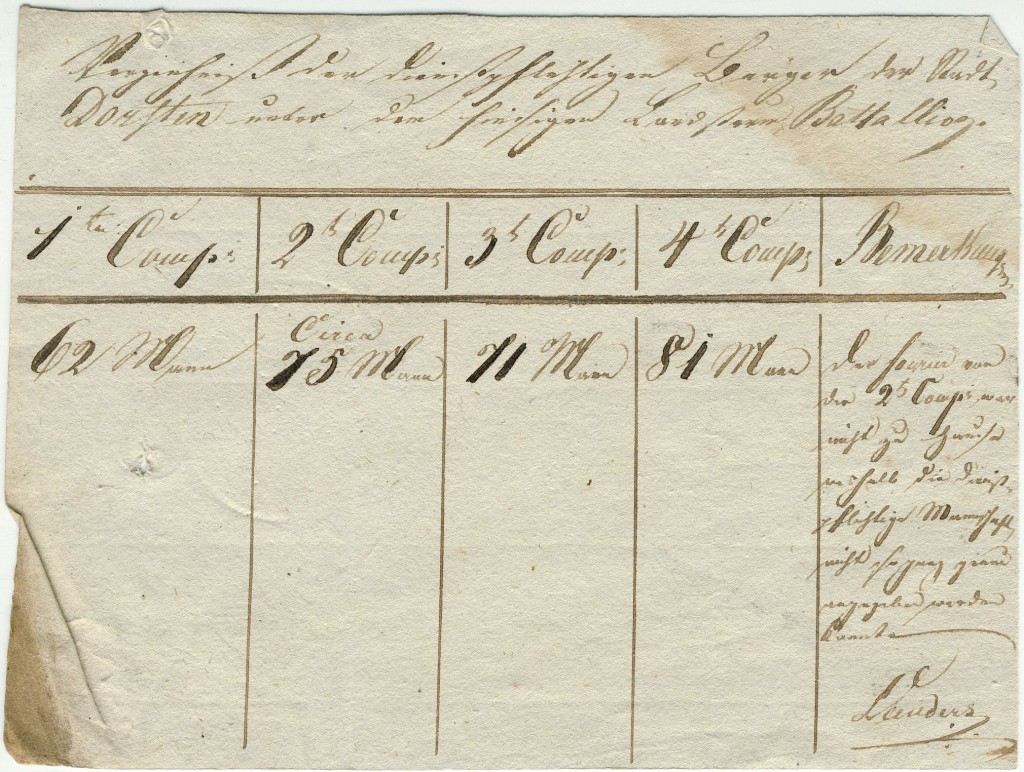 Verzeichniß der dienstpflichtigen Bürger der Stadt
Dorsten unter dem hiesigen Landsturm Battallion.
1te Comp: 2t Comp: 3t Comp: 4t Comp: Bemerkung
62 Mann Circa 75 Mann 71 Mann 81 Mann
Der von
der 2t Comp: war
nicht zu Hause
weshalb die dienst-
pflichtige Mannschaft
nicht so ganz genau
angegeben werden
konnte
Lünders